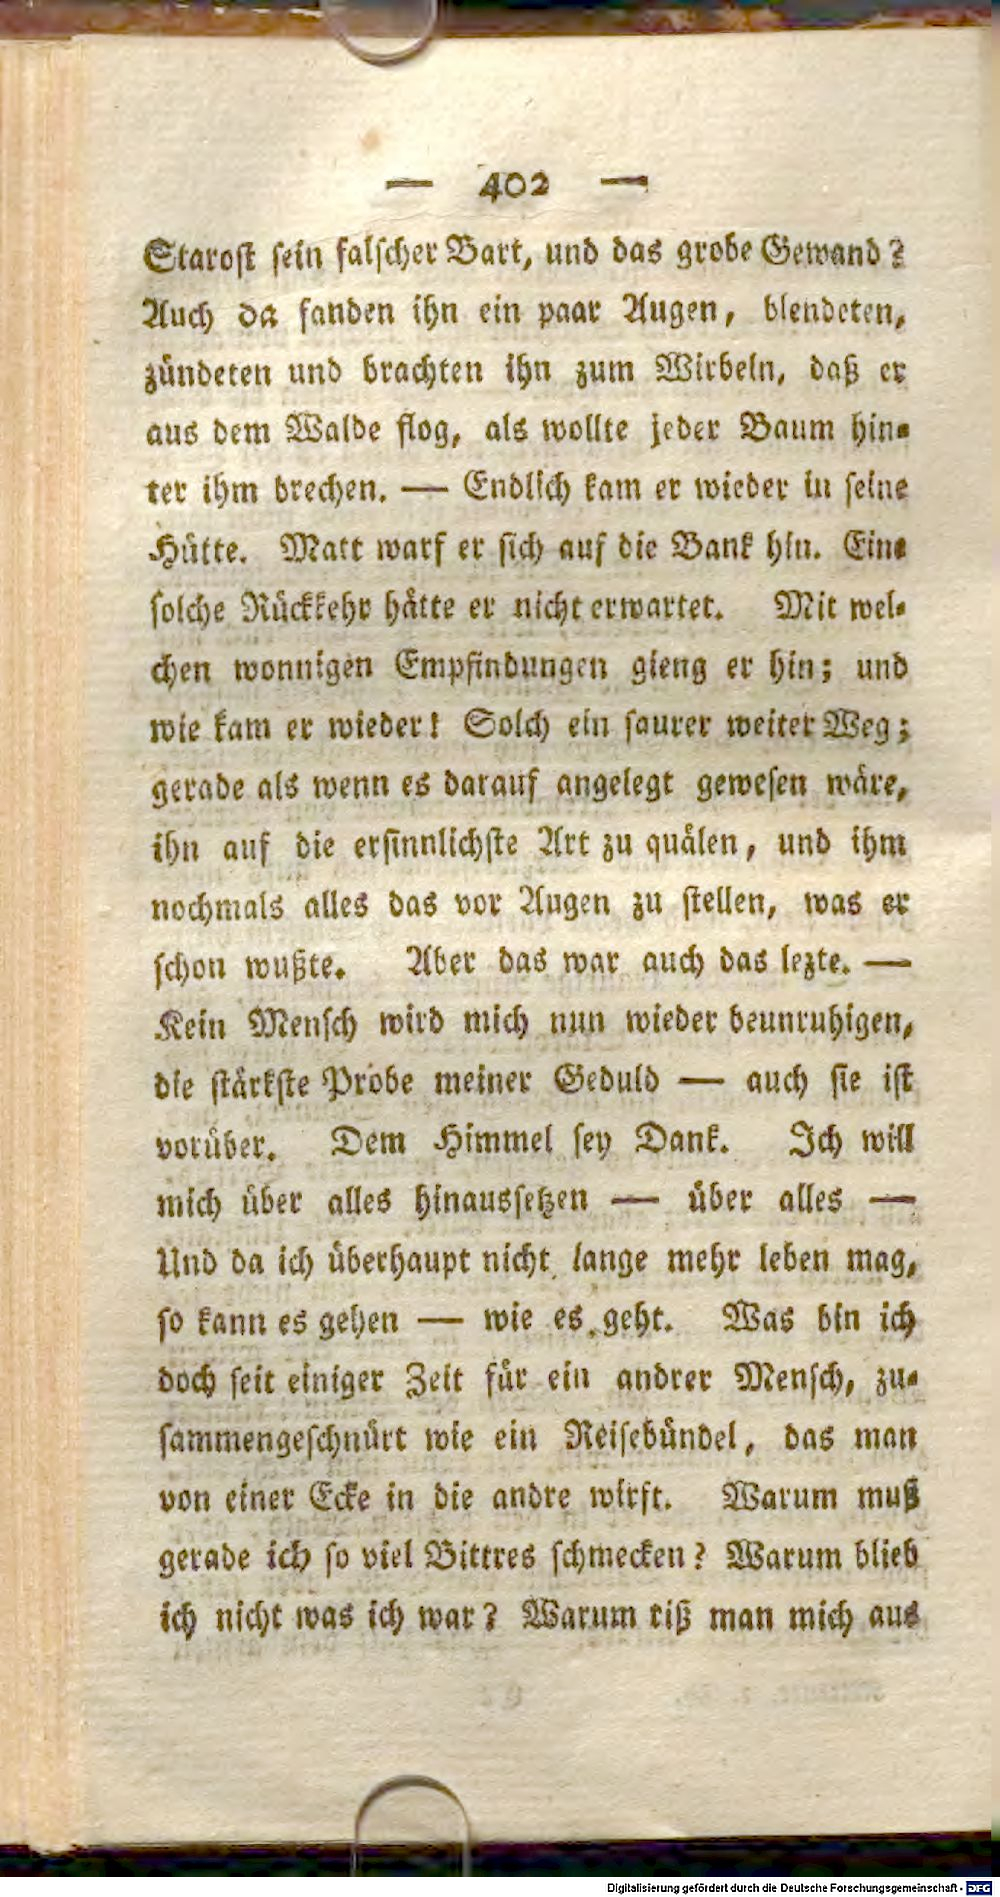 — 402 —
Starost sein falscher Bart, und das grobe Gewand?
Auch da fanden ihn ein paar Augen, blendeten,
zündeten und brachten ihn zum Wirbeln, daß er
aus dem Walde flog, als wollte jeder Baum hin-
ter ihm brechen. — Endlich kam er wieder in seine
Hütte. Matt warf er sich auf die Bank hin. Eine
solche Rückkehr hätte er nicht erwartet. Mit wel-
chen wonnigen Empfindungen gieng er hin; und
wie kam er wieder! Solch ein saurer weiter Weg;
gerade als wenn es darauf angelegt gewesen wäre,
ihn auf die ersinnlichste Art zu quälen, und ihm
nochmals alles das vor Augen zu stellen, was er
schon wußte. Aber das war auch das lezte. —
Kein Mensch wird mich nun wieder beunruhigen,
die stärkste Probe meiner Geduld — auch sie ist
vorüber. Dem Himmel sey Dank. Ich will
mich über alles hinaussetzen — über alles —
Und da ich überhaupt nicht lange mehr leben mag,
so kann es gehen — wie es geht. Was bin ich
doch seit einiger Zeit für ein andrer Mensch, zu-
sammengeschnürt wie ein Reisebündel, das man
von einer Ecke in die andre wirft. Warum muß
gerade ich so viel Bittres schmecken? Warum blieb
ich nicht was ich war? Warum riß man mich aus
Digitalisierung gefördert durch die Deutsche Forschungsgemeinschaft - DFG